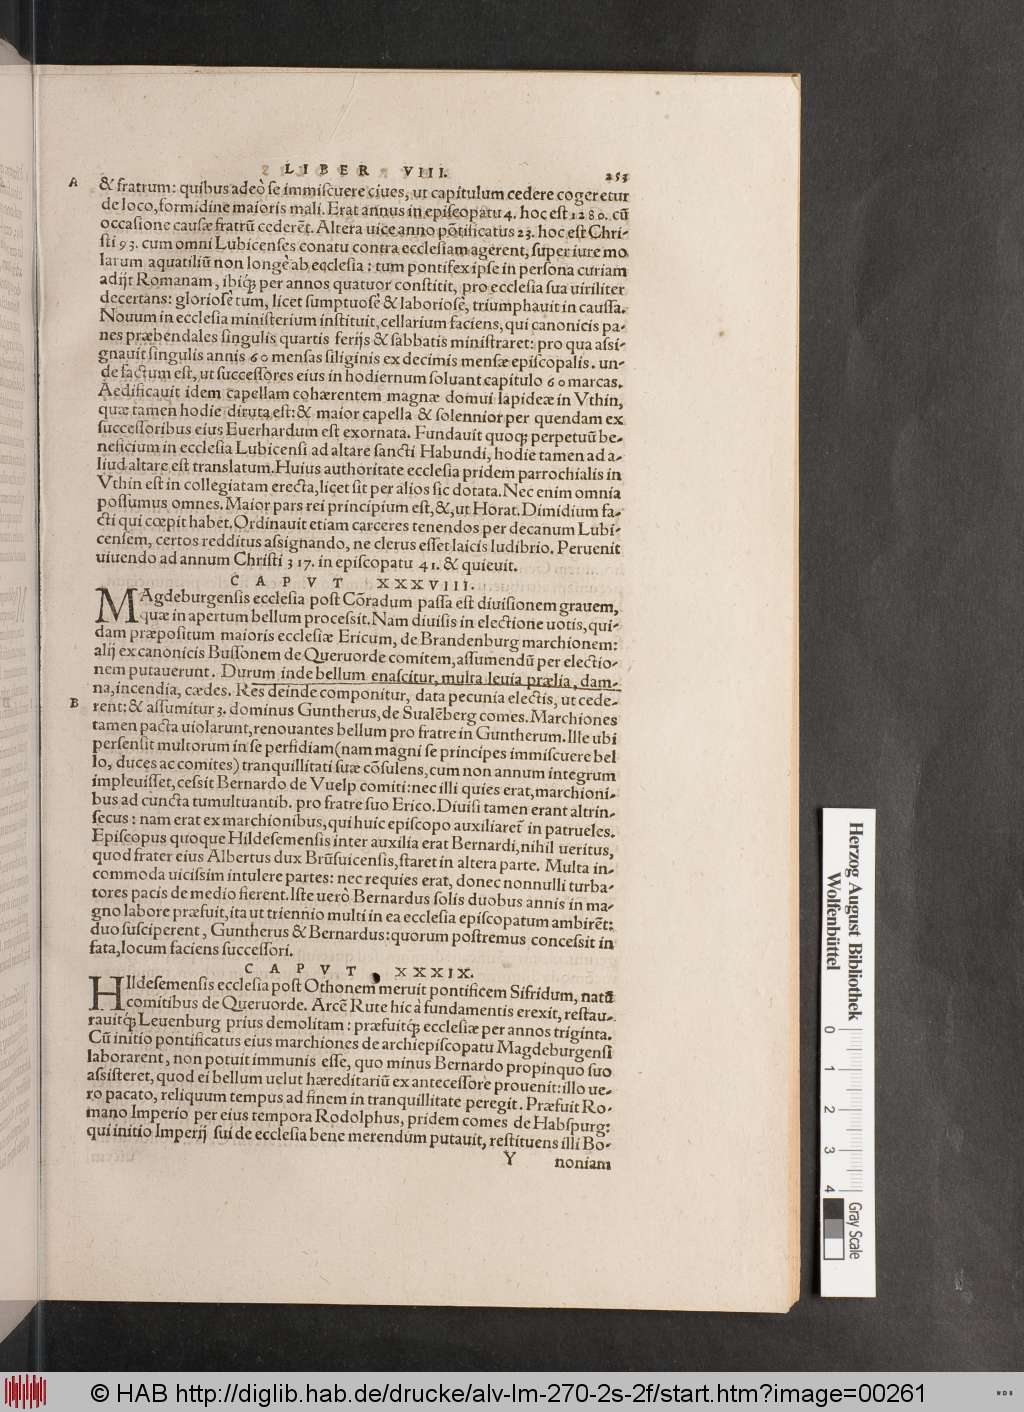 LIBER VIII. 253
A & fratrum: quibus adeò se immiscuere ciues, ut capitulum cedere cogeretur
de loco, formidine maioris mali. Erat annus in episcopatu 4. hoc est 1280. cũ
occasione causæ fratrũ cederẽt. Altera uice anno põtificatus 23. hoc est Chri-
sti 93. cum omni Lubicenses conatu contra ecclesiam agerent, super iure mo
larum aquatiliũ non longè ab ecclesia: tum pontifex ipse in persona curiam
adijt Romanam, ibiq́; per annos quatuor constitit, pro ecclesia sua uiriliter
decertans: gloriosè tum, licet sumptuosè & laboriosè, triumphauit in caussa.
Nouum in ecclesia ministerium instituit, cellarium faciens, qui canonicis pa-
nes præbendales singulis quartis ferijs & sabbatis ministraret: pro qua assi-
gnauit singulis annis 60 mensas siliginis ex decimis mensæ episcopalis. un-
de factum est, ut successores eius in hodiernum soluant capitulo 60 marcas.
Aedificauit idem capellam cohærentem magnæ domui lapideæ in Vthin,
quæ tamen hodie diruta est: & maior capella & solennior per quendam ex
successoribus eius Euerhardum est exornata. Fundauit quoq; perpetuũ be-
neficium in ecclesia Lubicensi ad altare sancti Habundi, hodie tamen ad a-
liud altare est translatum. Huius authoritate ecclesia pridem parrochialis in
Vthin est in collegiatam erecta, licet sit per alios sic dotata. Nec enim omnia
possumus omnes. Maior pars rei principium est, &, ut Horat. Dimidium fa-
cti qui cœpit habet. Ordinauit etiam carceres tenendos per decanum Lubi-
censem, certos redditus assignando, ne clerus esset laicis ludibrio. Peruenit
uiuendo ad annum Christi 317. in episcopatu 41. & quieuit.
CAPVT XXXVIII.
MAgdeburgensis ecclesia post Cõradum passa est diuisionem grauem,
quæ in apertum bellum processit. Nam diuisis in electione uotis, qui-
dam præpositum maioris ecclesiæ Ericum, de Brandenburg marchionem:
alij ex canonicis Bussonem de Queruorde comitem, assumendũ per electio-
nem putauerunt. Durum inde bellum enascitur, multa leuia prælia, dam-
na, incendia, cædes. Res deinde componitur, data pecunia electis, ut cede-
B rent: & assumitur 3. dominus Guntherus, de Sualẽberg comes. Marchiones
tamen pacta uiolarunt, renouantes bellum pro fratre in Guntherum. Ille ubi
persensit multorum in se perfidiam (nam magni se principes immiscuere bel
lo, duces ac comites) tranquillitati suæ cõsulens, cum non annum integrum
impleuisset, cessit Bernardo de Vuelp comiti: nec illi quies erat, marchioni-
bus ad cuncta tumultuantib. pro fratre suo Erico. Diuisi tamen erant altrin-
secus: nam erat ex marchionibus, qui huic episcopo auxiliaret̃ in patrueles.
Episcopus quoque Hildesemensis inter auxilia erat Bernardi, nihil ueritus,
quod frater eius Albertus dux Brũsuicensis, staret in altera parte. Multa in-
commoda uicissim intulere partes: nec requies erat, donec nonnulli turba-
tores pacis de medio fierent. Iste uerò Bernardus solis duobus annis in ma-
gno labore præfuit, ita ut triennio multi in ea ecclesia episcopatum ambirẽt:
duo susciperent, Guntherus & Bernardus: quorum postremus concessit in
fata, locum faciens successori.
CAPVT XXXIX.
HIldesemensis ecclesia post Othonem meruit pontificem Sifridum, natũ
comitibus de Queruorde. Arcẽ Rute hic à fundamentis erexit, restau-
rauitq́; Leuenburg prius demolitam: præfuitq́; ecclesiæ per annos triginta.
Cũ initio pontificatus eius marchiones de archiepiscopatu Magdeburgensi
laborarent, non potuit immunis esse, quo minus Bernardo propinquo suo
assisteret, quod ei bellum uelut hæreditariũ ex antecessore prouenit: illo ue-
ro pacato, reliquum tempus ad finem in tranquillitate peregit. Præfuit Ro-
mano Imperio per eius tempora Rodolphus, pridem comes de Habspurg:
qui initio Imperij sui de ecclesia bene merendum putauit, restituens illi Bo-
Y noniam
Herzog August Bibliothek
Wolfenbüttel
0 1 2 3 4
Gray Scale
© HAB http://diglib.hab.de/drucke/alv-lm-270-2s-2f/start.htm?image=00261